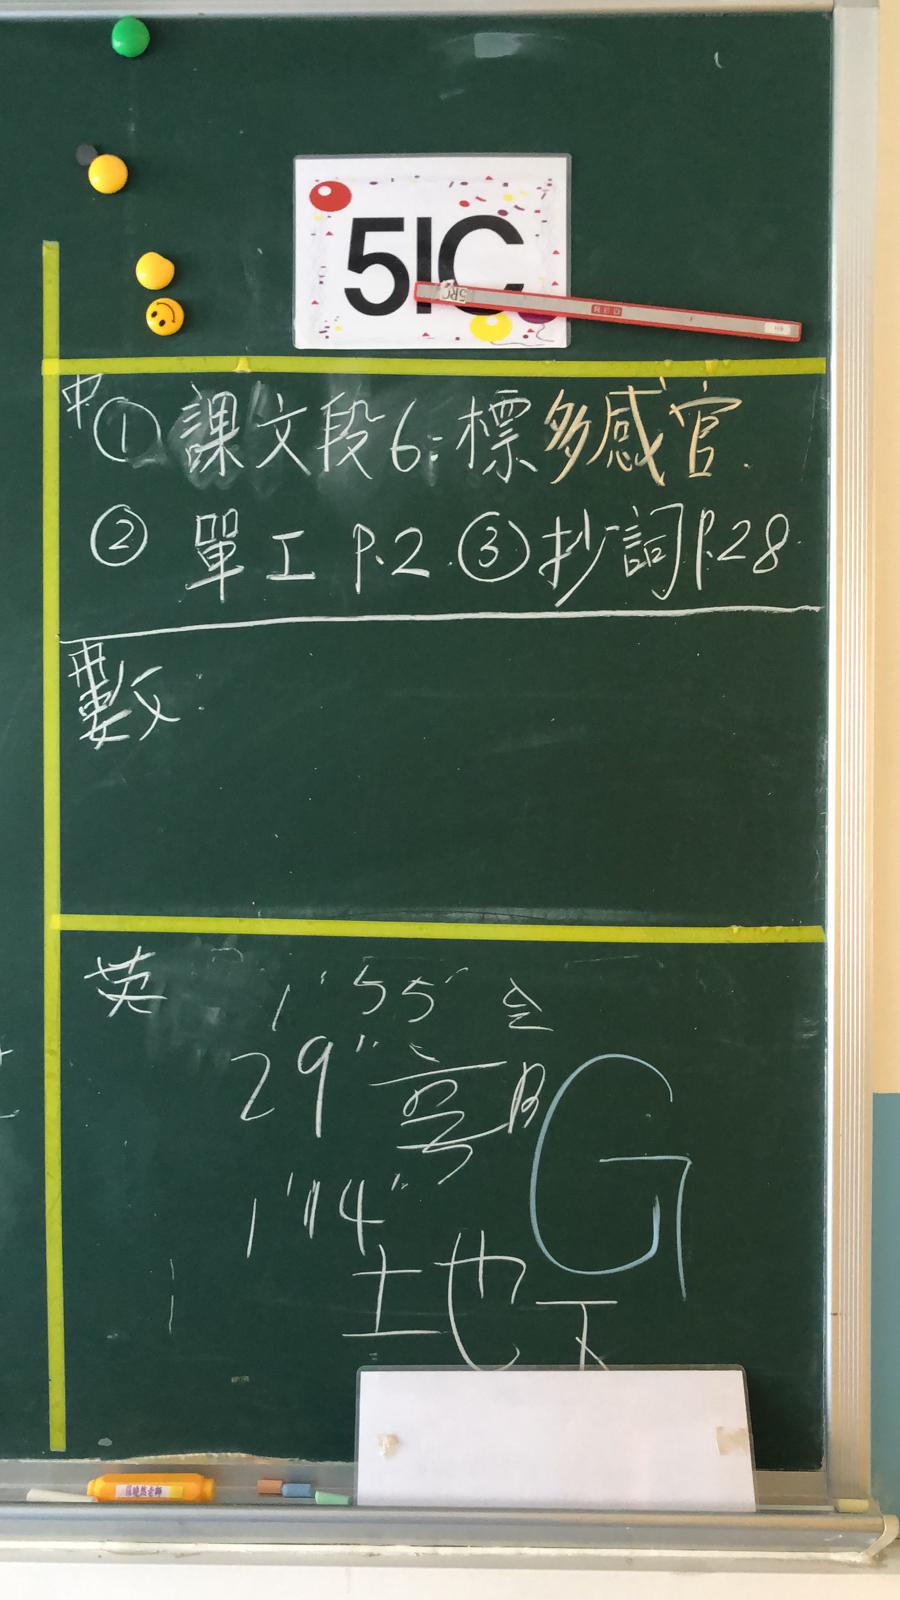 5IC
5RC RED HB
中 ① 課文段6:標多感官.
② 單工 P.2 ③抄詞P.28.
數:
英 1'55"
29"
1'14"
G
土也下